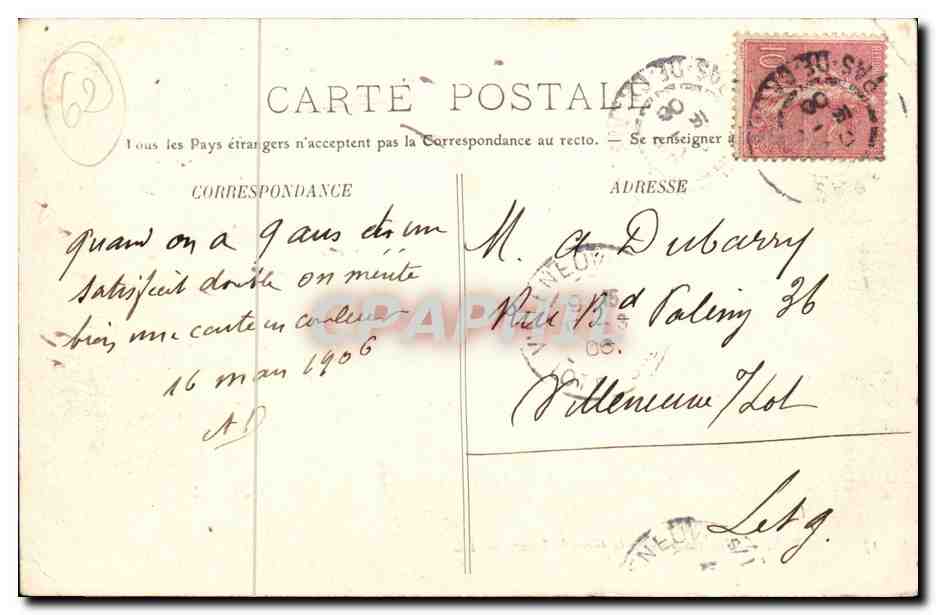 62
CARTE POSTALE
Tous les Pays étrangers n'acceptent pas la Correspondance au recto. — Se renseigner à
CORRESPONDANCE
quand on a 9 ans et un
satisfecit double on mérite
bien une carte en couleur
16 mars 1906
AD
ADRESSE
M. A Dubarry
Rue Bd Palissy 36
Villeneuve s/Lot
Let g.
10
PAS-DE-CALAIS
06
VILLENEUVE
06
LOT
NEUV
CPAPHIL